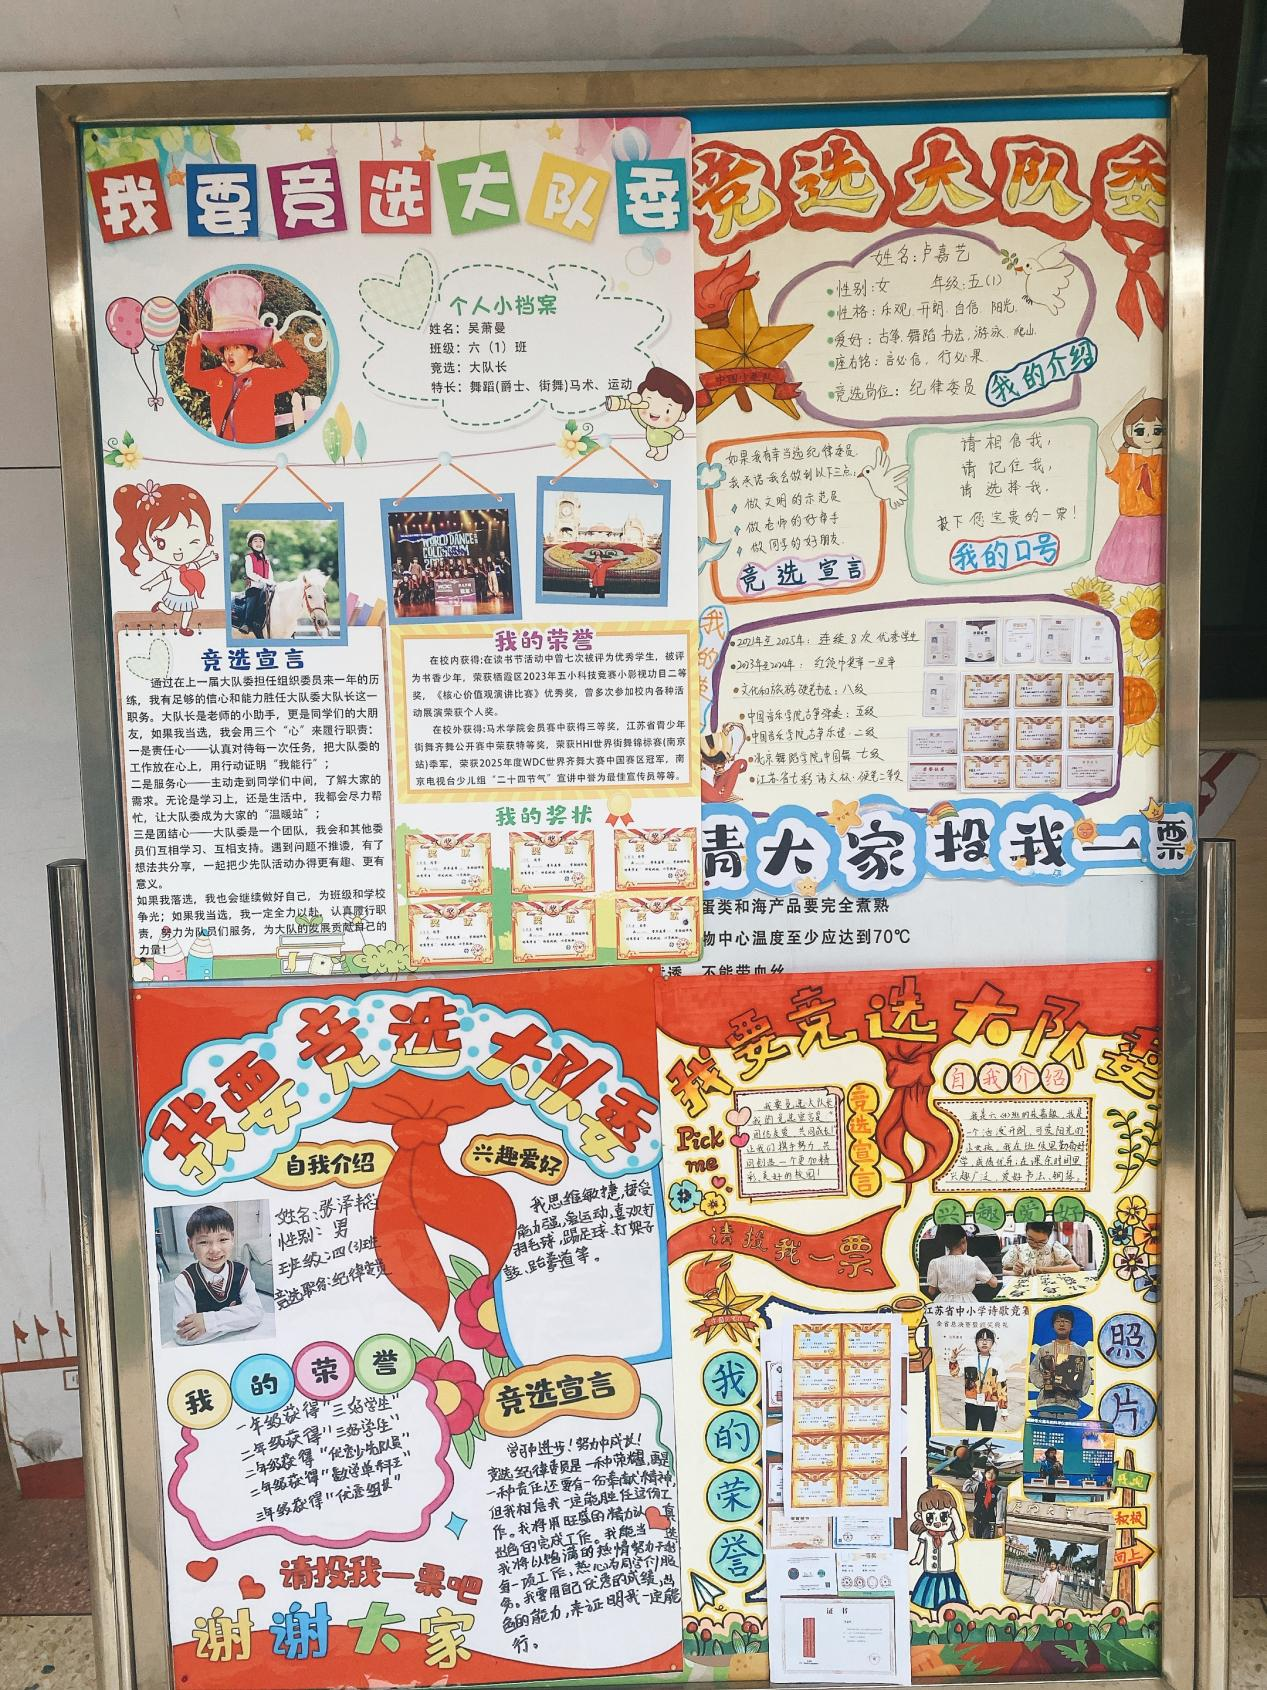 我要竞选大队委
个人小档案
姓名：吴萧曼
班级：六（1）班
竞选：大队长
特长：舞蹈(爵士、街舞)马术、运动
竞选宣言
通过在上一届大队委担任组织委员来一年的历
练，我有足够的信心和能力胜任大队委大队长这一
职务。大队长是老师的小助手，更是同学们的大朋
友，如果我当选，我会用三个“心”来履行职责：
一是责任心——认真对待每一次任务，把大队委的
工作放在心上，用行动证明“我能行”；
二是服务心——主动走到同学们中间，了解大家的
需求。无论是学习上，还是生活中，我都会尽力帮
忙，让大队委成为大家的“温暖站”；
三是团结心——大队委是一个团队，我会和其他委
员们互相学习、互相支持。遇到问题不推诿，有了
想法共分享，一起把少先队活动办得更有趣、更有
意义。
如果我落选，我也会继续做好自己，为班级和学校
争光；如果我当选，我一定全力以赴，认真履行职
责，努力为队员们服务，为大队的发展贡献自己的
力量！
我的荣誉
在校内获得:在读书节活动中曾七次被评为优秀学生，被评
为书香少年，荣获栖霞区2023年五小科技竞赛小影视项目二等
奖，《核心价值观演讲比赛》优秀奖，曾多次参加校内各种活
动展演荣获个人奖。
在校外获得:马术学院会员赛中获得三等奖，江苏省青少年
街舞齐舞公开赛中荣获特等奖，荣获HHI世界街舞锦标赛(南京
站)季军，荣获2025年度WDC世界齐舞大赛中国赛区冠军，南
京电视台少儿组“二十四节气”宣讲中誉为最佳宣传员等等。
我的奖状
竞选大队委
姓名：卢嘉艺
性别：女 年级：五(1)
性格：乐观、开朗、自信、阳光
爱好：古筝、舞蹈、书法、游泳、爬山
座右铭：言必信，行必果
竞选岗位：纪律委员
我的介绍
如果我有幸当选纪律委员
我承诺我会做到以下三点：
做文明的示范员
做老师的好帮手
做同学的好朋友
竞选宣言
请相信我，
请记住我，
请选择我.
投下您宝贵的一票！
我的口号
我的
2021年至2025年：连续8次优秀学生
2023年至2024年：红领巾奖章一旦章
文化和旅游硬笔书法：八级
中国音乐学院古筝弹奏：五级
中国音乐学院古筝乐理：二级
北京舞蹈学院中国舞七级
江苏省七彩语文杯·硬笔二等奖
请大家投我一票
蛋类和海产品要完全煮熟
物中心温度至少应达到70℃
不能带血丝
我要竞选大队委
自我介绍
姓名：张泽韬
性别：男
班级：四(3)班
竞选职务：纪律委员
兴趣爱好
我思维敏捷，接受
能力强，爱运动，喜欢打
羽毛球、踢足球、打架子
鼓、跆拳道等。
我的荣誉
一年级获得“三好学生”
二年级获得“三好学生”
二年级获得“优秀少先队员”
二年级获得“数学单科王”
三年级获得“优秀组长”
竞选宣言
学习中进步！努力中成长！
竞选纪律委员是一种荣耀，更是
一种责任还要有一份奉献精神，
但我相信我一定能胜任这份工
作。我将用旺盛的精力认真
出色的完成工作。我能当选
我将以饱满的热情努力干好
每一项工作，热心为同学们服
务。我要用自己优秀的成绩，出
色的能力，来证明我一定能
行。
请投我一票吧
谢谢大家
我要竞选大队委
Pick
me
我要竞选大队长
我的竞选宣言是“
团结友爱，共同成长！
让我们携手努力，共
同创造一个更加精
彩、美好的校园！
竞选宣言
自我介绍
一个活泼开朗、可爱阳光的
小女孩，我在班级里勤奋好
学，成绩优异；在课余时间里
兴趣广泛，爱好书法、钢琴、
兴趣爱好
请投我一票
江苏省中小学诗歌竞
照片
我的荣誉
证书
积极
向上